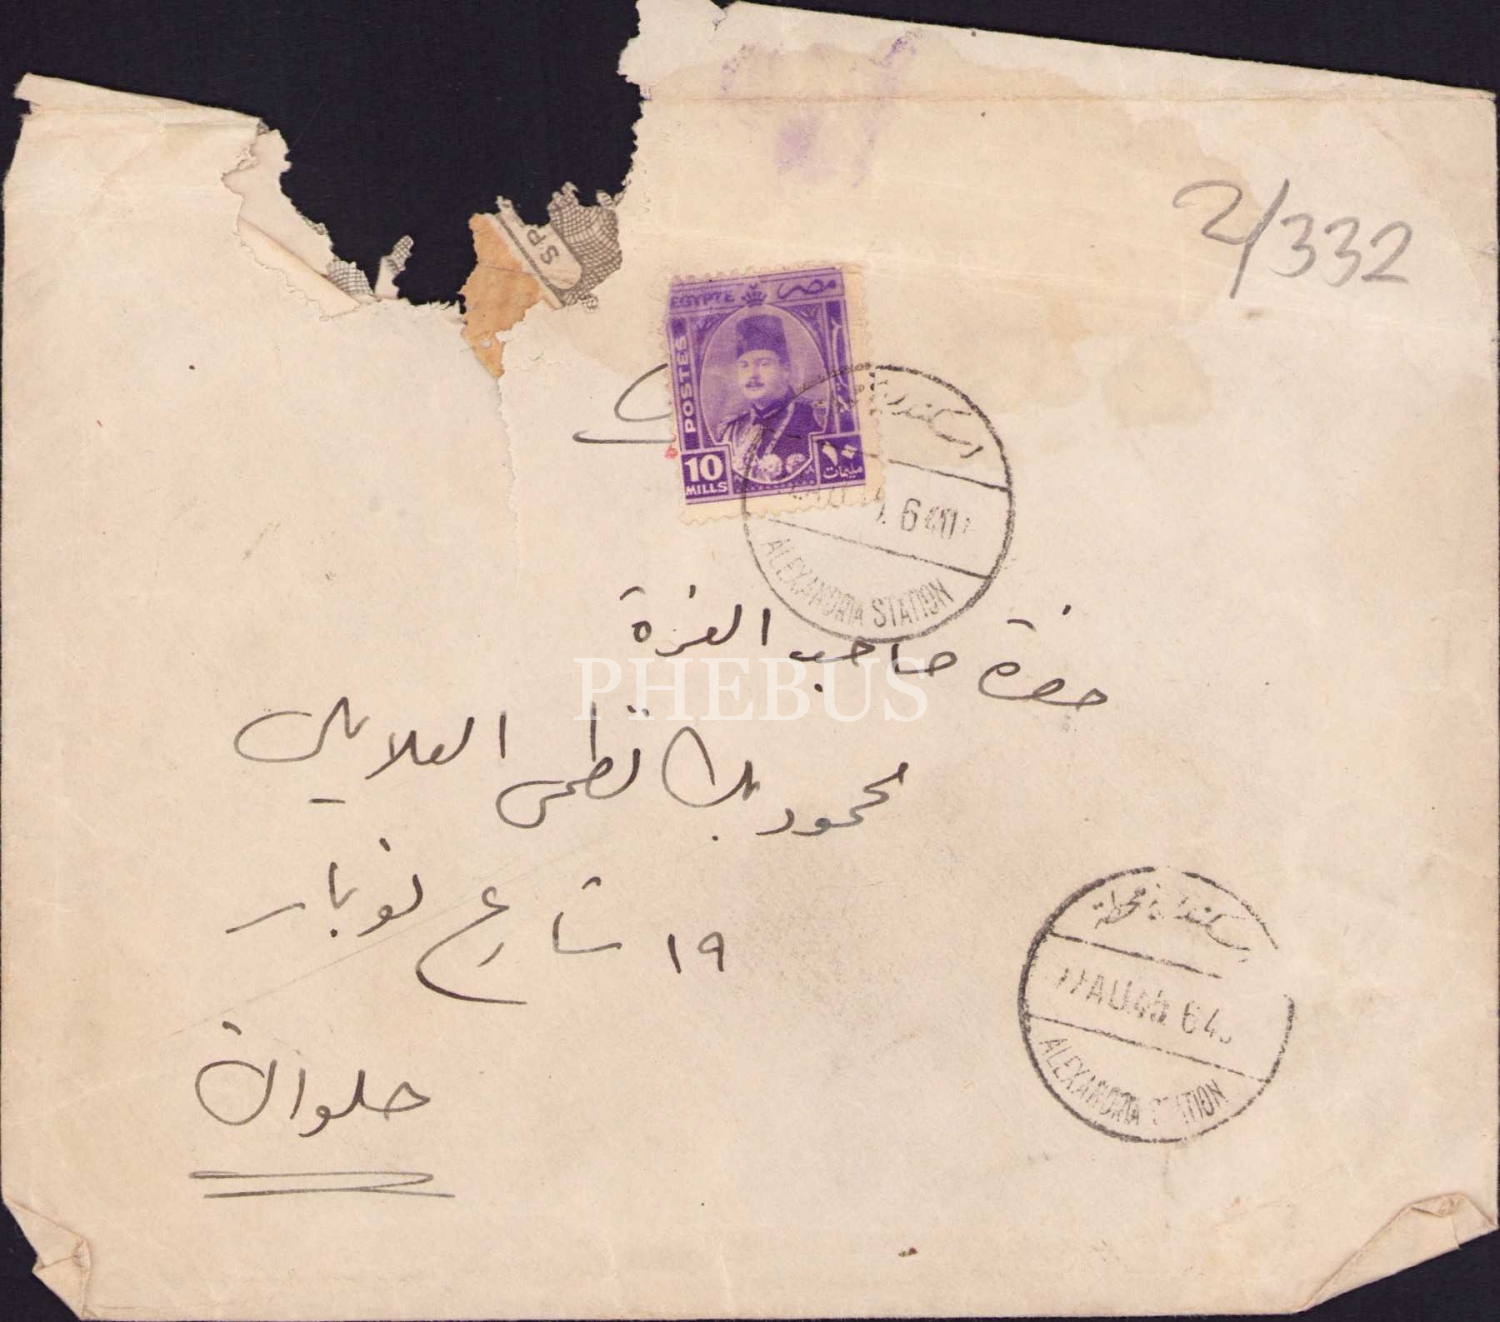 2/332
SP
EGYPTE مصر
POSTES
10
MILLS
١٠
مليمات
ALEXANDRIA STATION
حضرة صاحب العزة
PHEBUS
محمود بك نظمى العلايلى
١٩ شارع نوبار
حلوان
اسكندرية محطة
AU.45. 6 4
ALEXANDRIA STATION